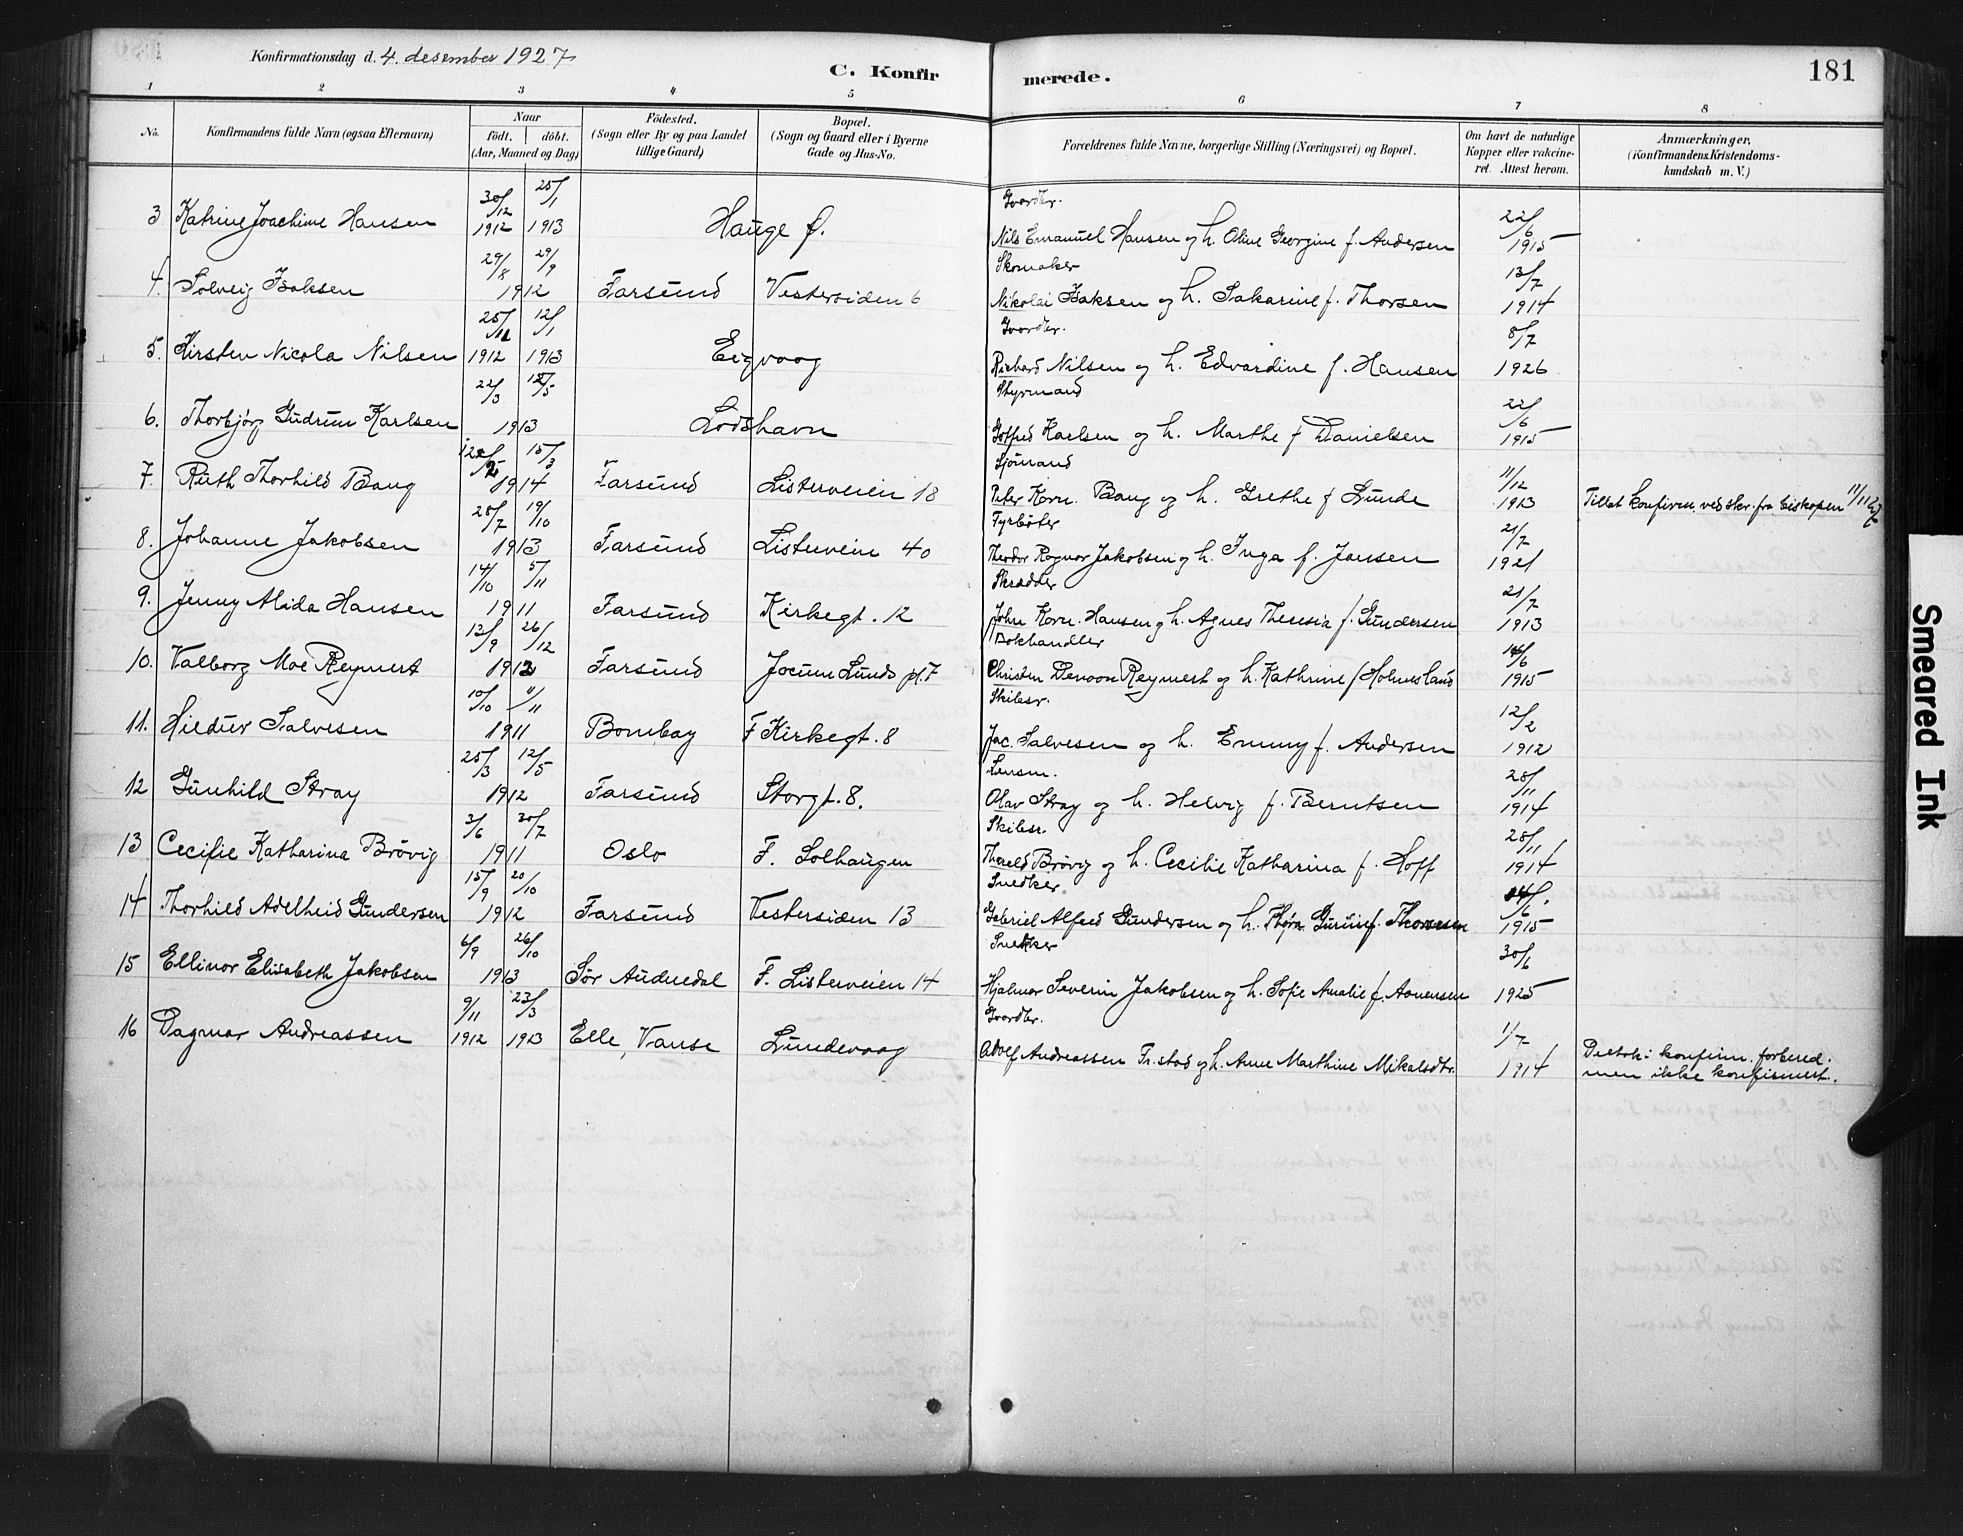 Konfirmationsdag d. 4. desember 1927
C. Konfirmerede.
181
1 2 3 4 5 6 7 8
No.
Konfirmandens fulde Navn (ogsaa Efternavn)
Naar
födt. döbt.
(Aar, Maaned og Dag)
Födested.
(Sogn eller By og paa Landet
tillige Gaard)
Bopæl.
(Sogn og Gaard eller i Byerne
Gade og Hus-No.
Forældrenes fulde Navne, borgerlige Stilling (Næringsvei) og Bopæl.
Om havt de naturlige
Kopper eller vakcine-
ret. Attest herom.
Anmærkninger.
(Konfirmandens Kristendoms-
kundskab m. V.)
30/12 25/1 22/6
3 Katrine Joachime Hansen 1912 1913 Hauge f. Nils Emanuel Hansen og h. Oline Georgine f. Andersen 1915
29/8 29/9 Skomaker 13/7
4. Solveig Isaksen 1912 Farsund Vestersiden 6 Nikolai Isaksen og h. Sakarine f. Thorsen 1914
25/11 12/1 8/7
5. Kirsten Nicola Nilsen 1912 1913 Eigvaag Richard Nilsen og h. Edvardine f. Hansen 1926
22/3 Styrmand 22/6
6. Thorbjørg Gudrun Karlsen 1913 Lodshavn Gotfred Karlsen og h. Marthe f Danielsen 1915
15/3 Sjömand 11/12
7. Ruth Thorhild Bang 1914 Farsund Listerveien 18 Peter Korn. Bang og h. Grethe f Lunde 1913 Tillat konfirm. ved skr. fra biskopen
28/7 19/10 Fyrböter 21/7
8. Johanne Jakobsen 1913 Farsund Listerveien 40 Theodor Ragnar Jakobsen og h. Inga f. Jansen 1921
14/10 5/11 Skrædder 21/7
9. Jenny Alida Hansen 1911 Farsund Kirkegt. 12 John Korn. Hansen og h. Agnes Theresia f. Gundersen 1913
13/9 26/12 Bokhandler
10. Valborg Moe Reymert 1912 Farsund Jocum Lunds pl. 7 Christen Devoon Reymert og h. Kathrine f Holmesland 1915
10/10 11/11 Skibsr. 12/2
11. Hildur Salvesen 1911 Bombay F Kirkegt. 8 Jac. Salvesen og h. Emmy f. Andersen 1912
25/3 12/5 Lensm. 28/11
12 Gunhild Stray 1912 Farsund Storgt. 8. Olav Stray og h. Helvig f. Berntsen 1914
3/6 30/7 Skibsr. 28/11
13 Cecilie Katharina Brövig 1911 Oslo F. Solhaugen Thorald Brövig og h. Cecilie Katharina f. Hoff 1914
15/9 20/10 Snedker
14 Thorhild Adelheid Gundersen 1912 Farsund Vestersiden 13 Gabriel Alfred Gundersen og h. Thora f. Thomesen 1915
6/9 26/10 Snedker 30/6
15 Ellinor Elisabeth Jakobsen 1913 Sör Audnedal F. Listerveien 14 Hjalmar Severin Jakobsen og h. Sofie Amalie f. Aanensen 1925
9/11 23/3 1/7
16 Dagmar Andreassen 1912 1913 Elle, Vanse Lundevaag Adolf Andreassen Fr. stad og h. Anne Marthine Mikalsdtr. 1914 Deltok i konfirm. forbered.
men ikke konfirmert.
Smeared Ink